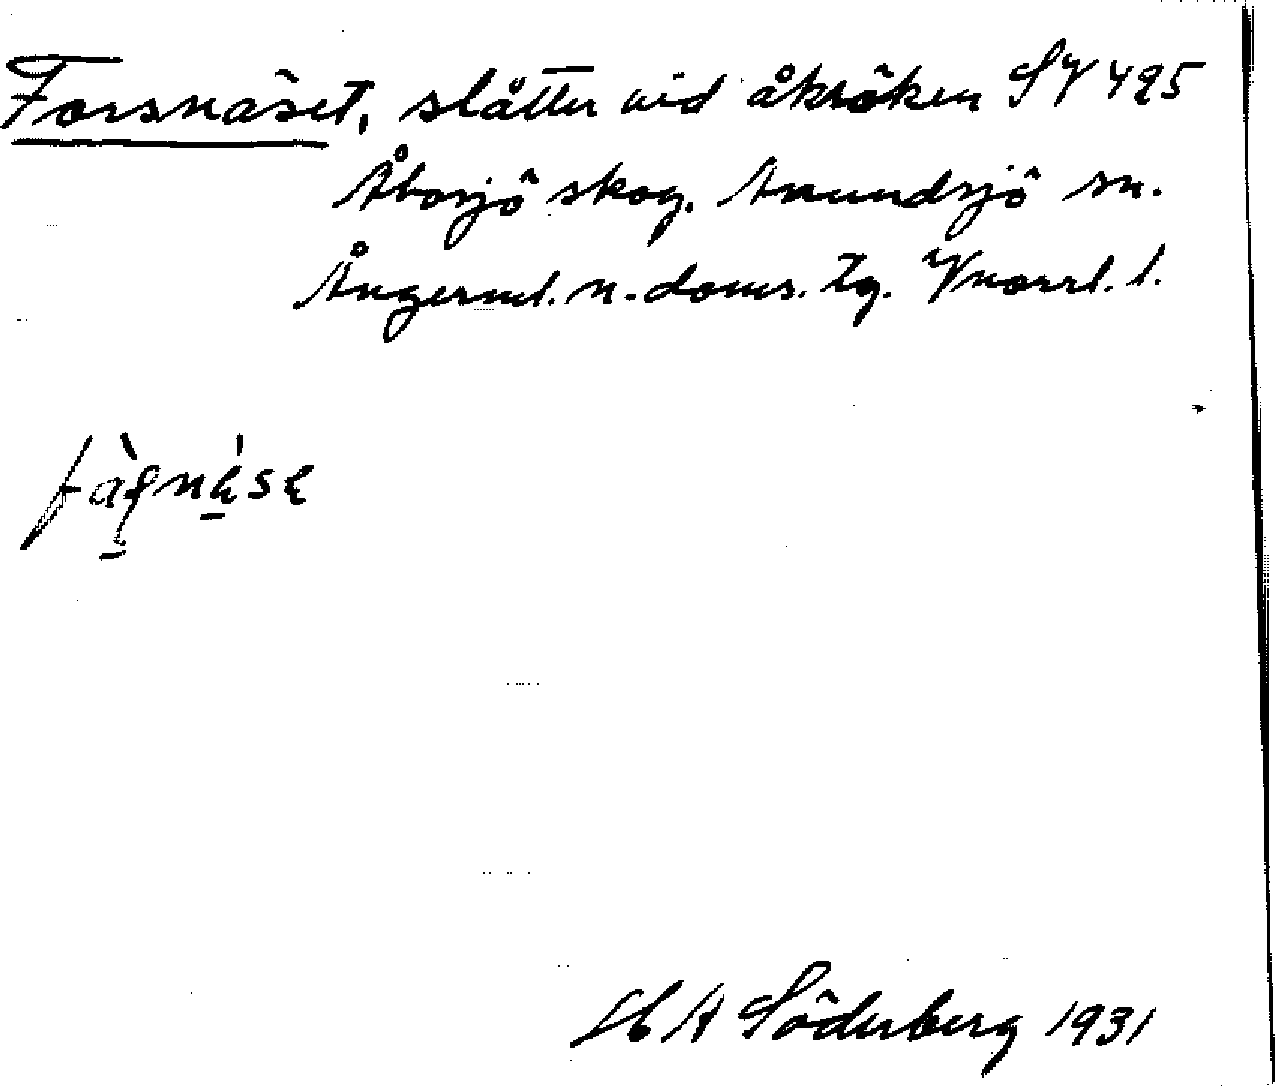 Forsnäset, slåtter vid åkröken SV 495
Åbosjö skog. Anundsjö sn.
Ångerml. n. doms. tg. Vnorrl. l.
fàʂnä́sɛ
H A Söderberg 1931